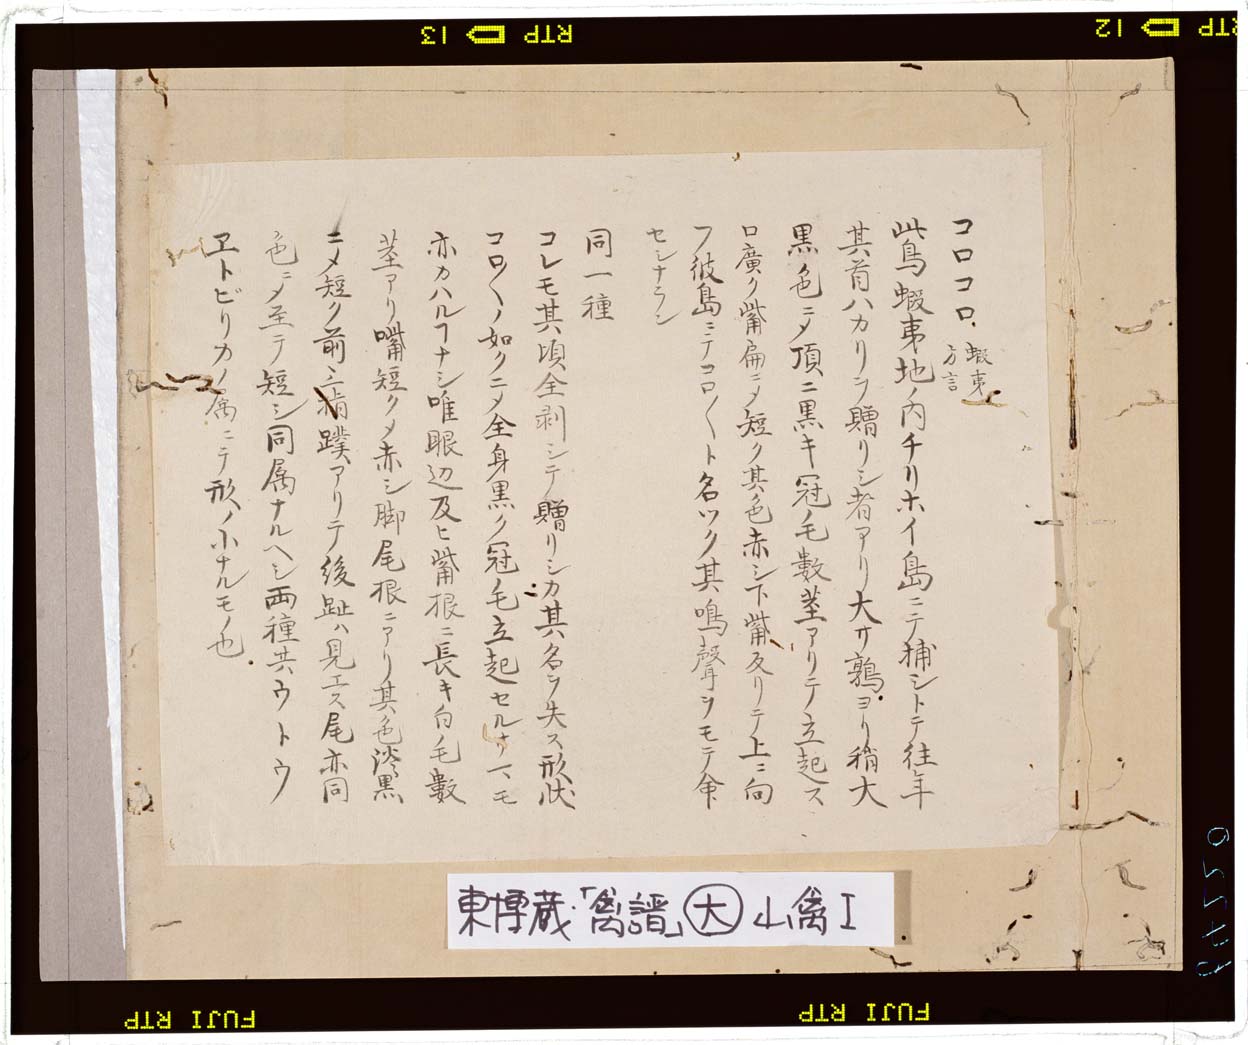 コロコロ 蝦夷方言
此鳥蝦夷地ノ内チリホイ島ニテ捕シトテ往年
其首ハカリヲ贈リシ者アリ大サ鶉ヨリ稍大
黒色ニメ頂ニ黒キ冠ノ毛數茎アリテ立起ス
口廣ク觜扁ニメ短ク其色赤シ下觜反リテ上ニ向
フ彼島ニテコロ〱ト名ツク其鳴聲ヲモテ命
セシナラン
同一種
コレモ其頃全剥シテ贈リシカ其名ヲ失ス形状
コロ〱ノ如クニメ全身黒ク冠毛立起セルサマモ
亦カハルヿナシ唯眼辺及ヒ觜根ニ長キ白毛數
茎アリ嘴短クメ赤シ脚尾根ニアリ其色淡黒
ニメ短ク前三指蹼アリテ後趾ハ見エス尾亦同
色ニメ至テ短シ同属ナルヘシ両種共ウトウ
ヱトビリカノ属ニテ形ノ小ナルモノ也
東博蔵「禽譜」大 山禽I
RTP 13
RTP 12
FUJI RTP
FUJI RTP